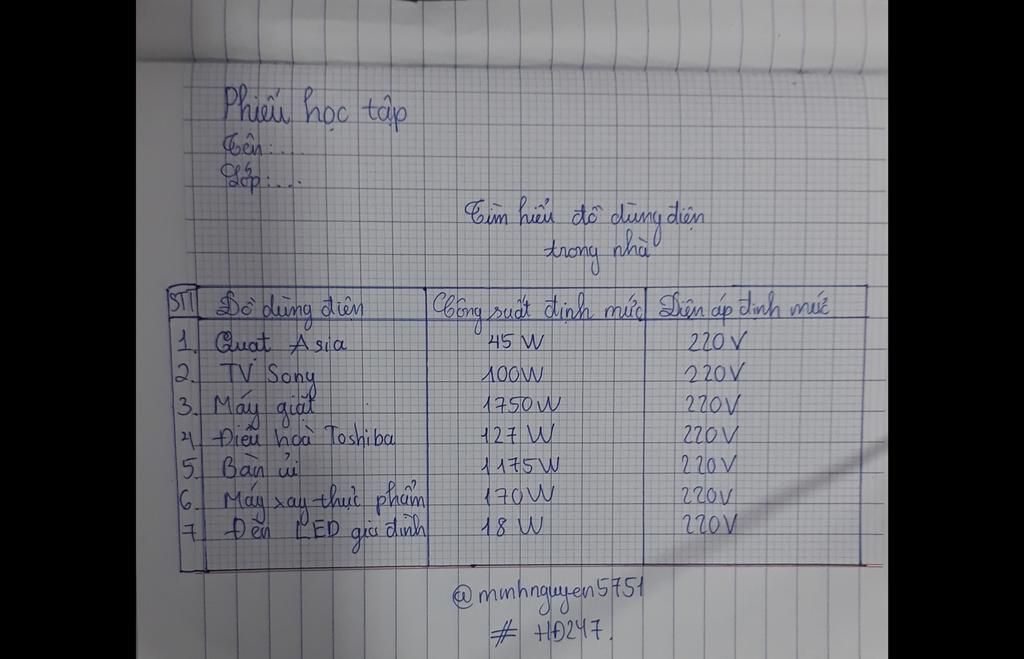 Phiếu học tập
Tên:....
Lớp:....
Tìm hiểu đồ dùng điện
trong nhà
STT Đồ dùng điện Công suất định mức Điện áp định mức
1. Quạt Asia 45 W 220V
2. TV Sony 100W 220V
3. Máy giặt 1750W 220V
4 Điều hoà Toshiba 127 W 220V
5. Bàn ủi 1175W 220V
6. Máy xay thực phẩm 170W 220V
7 Đèn LED gia đình 18 W 220V
@minhnguyen5751
# HĐ247.